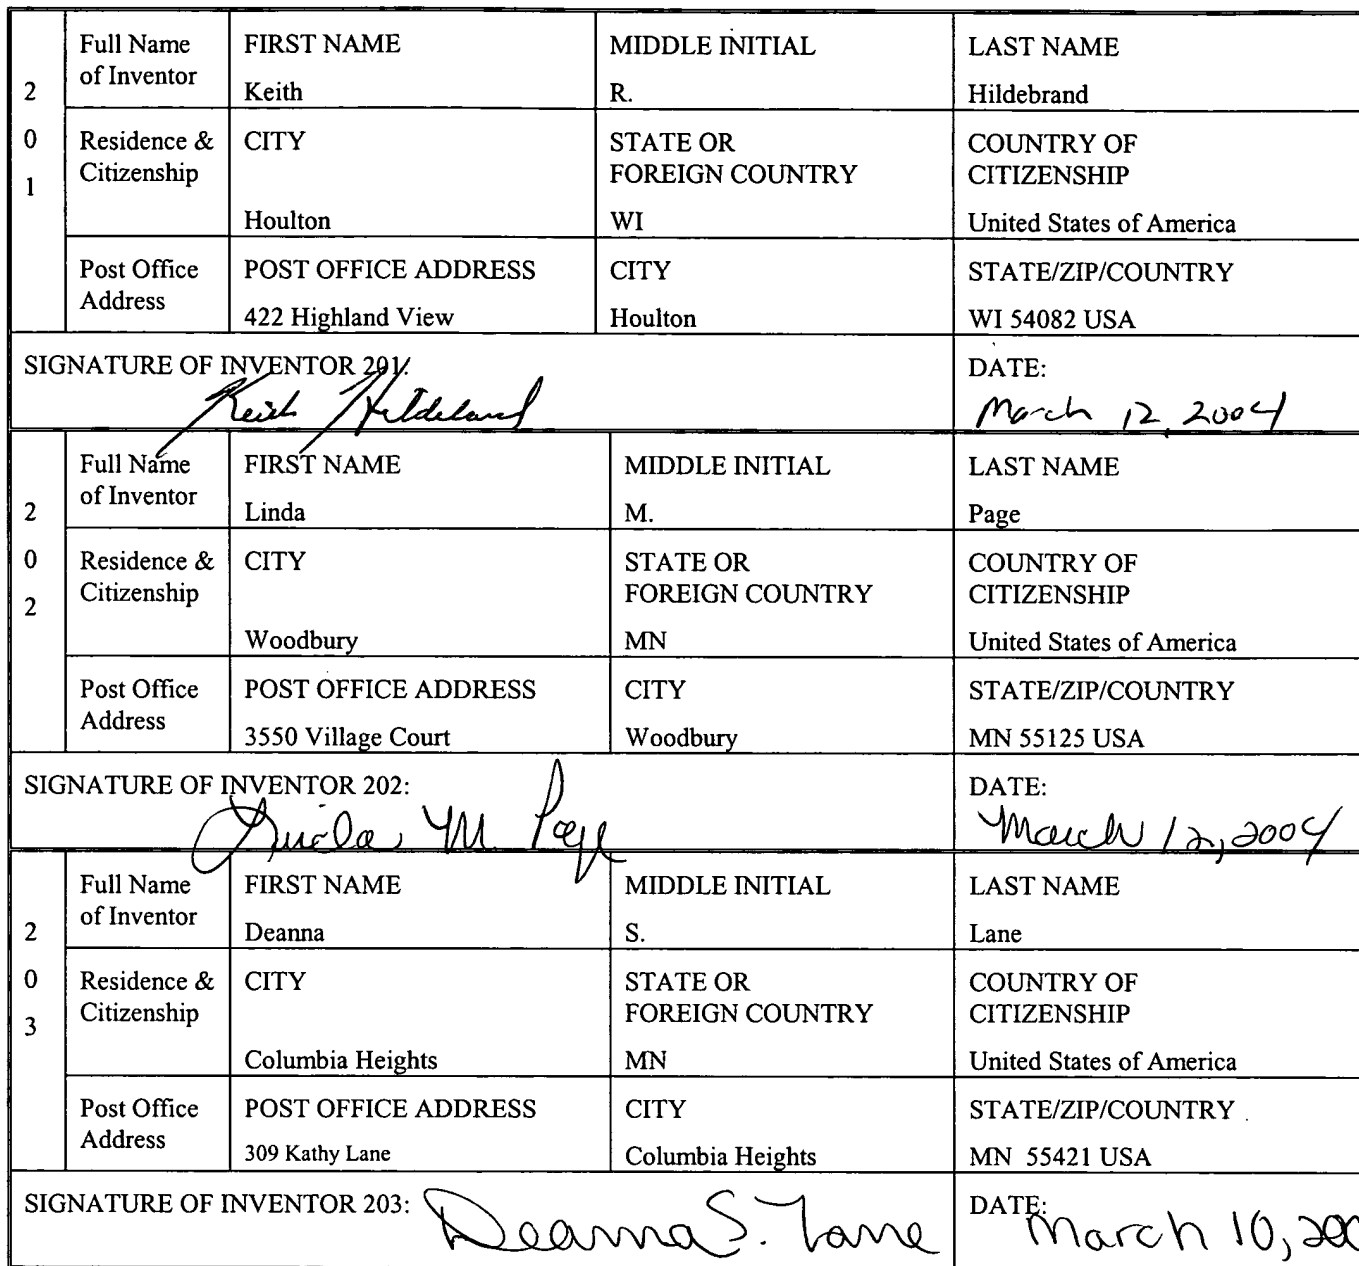 2 0 1
Full Name of Inventor
FIRST NAME
Keith
MIDDLE INITIAL
R.
LAST NAME
Hildebrand
Residence & Citizenship
CITY
Houlton
STATE OR FOREIGN COUNTRY
WI
COUNTRY OF CITIZENSHIP
United States of America
Post Office Address
POST OFFICE ADDRESS
422 Highland View
CITY
Houlton
STATE/ZIP/COUNTRY
WI 54082 USA
SIGNATURE OF INVENTOR 201:
Keith Hildebrand
DATE:
March 12, 2004
2 0 2
Full Name of Inventor
FIRST NAME
Linda
MIDDLE INITIAL
M.
LAST NAME
Page
Residence & Citizenship
CITY
Woodbury
STATE OR FOREIGN COUNTRY
MN
COUNTRY OF CITIZENSHIP
United States of America
Post Office Address
POST OFFICE ADDRESS
3550 Village Court
CITY
Woodbury
STATE/ZIP/COUNTRY
MN 55125 USA
SIGNATURE OF INVENTOR 202:
Linda M. Page
DATE:
March 12, 2004
2 0 3
Full Name of Inventor
FIRST NAME
Deanna
MIDDLE INITIAL
S.
LAST NAME
Lane
Residence & Citizenship
CITY
Columbia Heights
STATE OR FOREIGN COUNTRY
MN
COUNTRY OF CITIZENSHIP
United States of America
Post Office Address
POST OFFICE ADDRESS
309 Kathy Lane
CITY
Columbia Heights
STATE/ZIP/COUNTRY
MN 55421 USA
SIGNATURE OF INVENTOR 203:
Deanna S. Lane
DATE:
March 10, 200